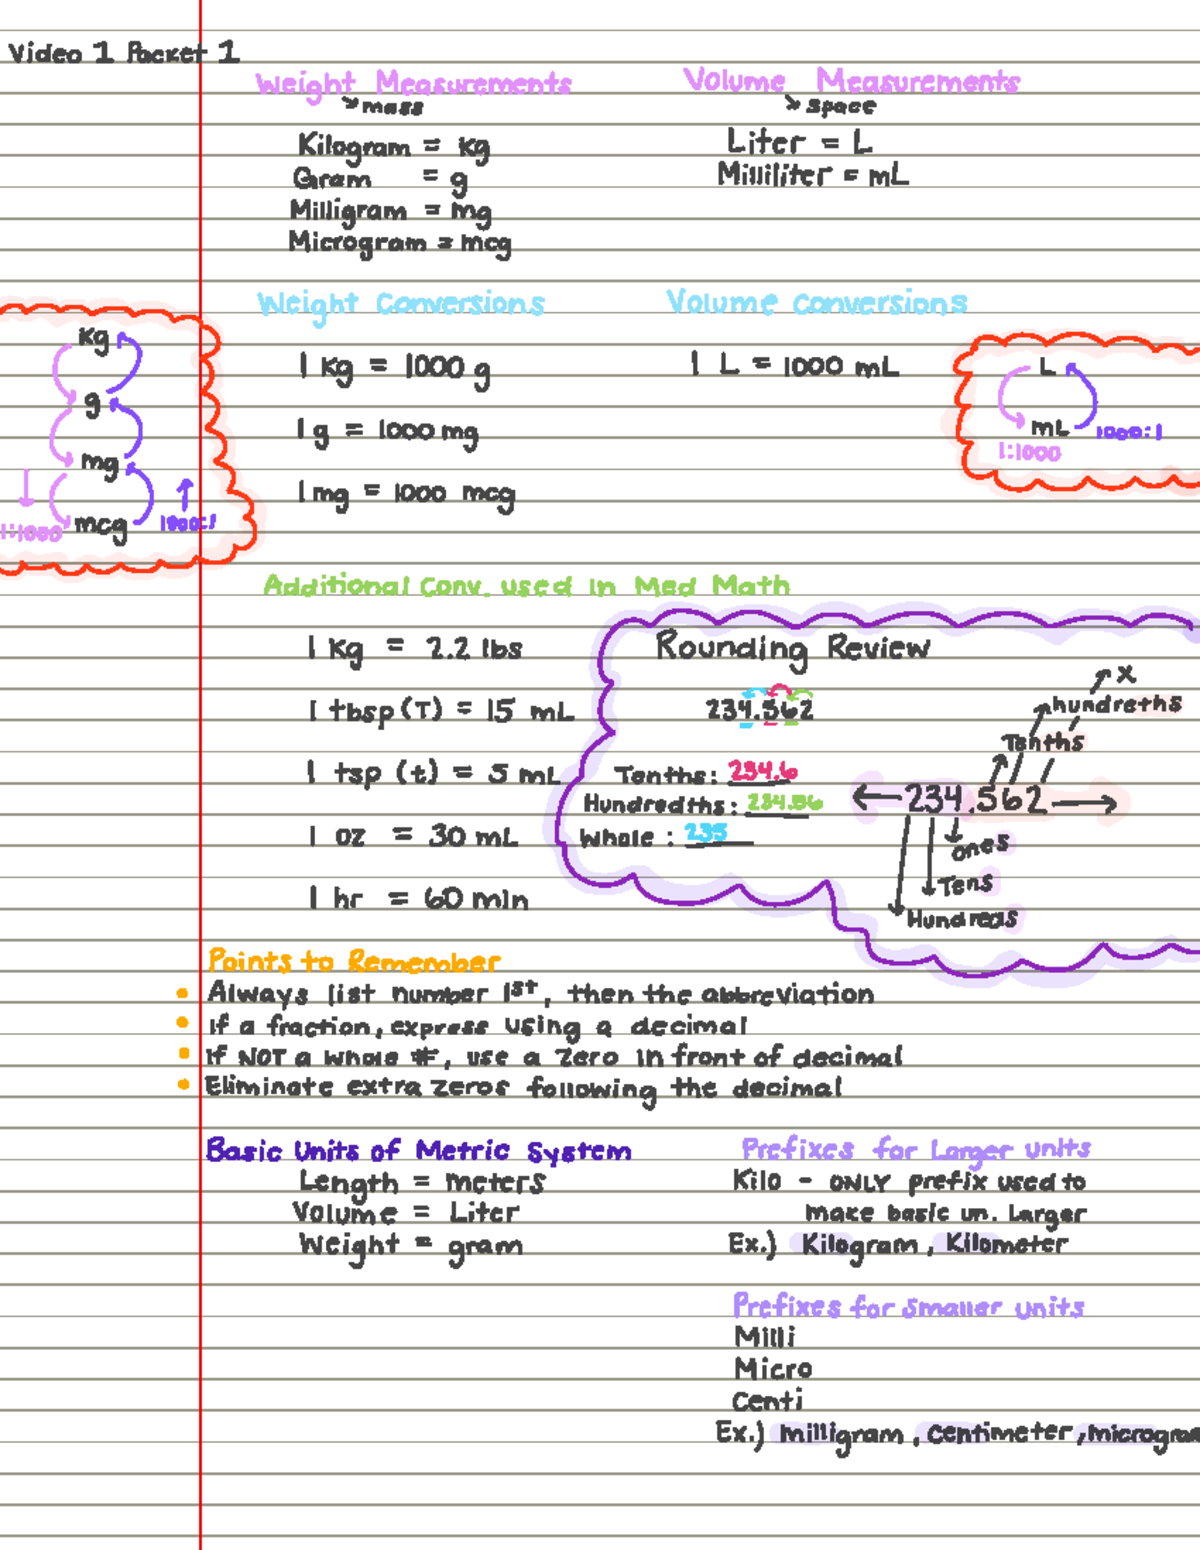 Video 1 Packet 1
Weight Measurements
↘ mass
Kilogram = kg
Gram = g
Milligram = mg
Microgram = mcg
Volume Measurements
↘ space
Liter = L
Milliliter = mL
kg
g
mg
mcg
1:1000
1000:1
Weight Conversions
1 kg = 1000 g
1 g = 1000 mg
1 mg = 1000 mcg
Volume Conversions
1 L = 1000 mL
L
mL
1000:1
1:1000
Additional Conv. used in Med Math
1 kg = 2.2 lbs
1 tbsp (T) = 15 mL
1 tsp (t) = 5 mL
1 oz = 30 mL
1 hr = 60 min
Rounding Review
234.562
Tenths: 234.6
Hundredths: 234.56
Whole: 235
x
hundreths
Tenths
234.562
ones
Tens
Hundreds
Points to Remember
• Always list number 1st, then the abbreviation
• If a fraction, express using a decimal
• If NOT a whole #, use a zero in front of decimal
• Eliminate extra zeros following the decimal
Basic Units of Metric System
Length = meters
Volume = Liter
Weight = gram
Prefixes for Larger units
Kilo - ONLY prefix used to
make basic un. Larger
Ex.) Kilogram, Kilometer
Prefixes for smaller units
Milli
Micro
Centi
Ex.) milligram, centimeter, microgram